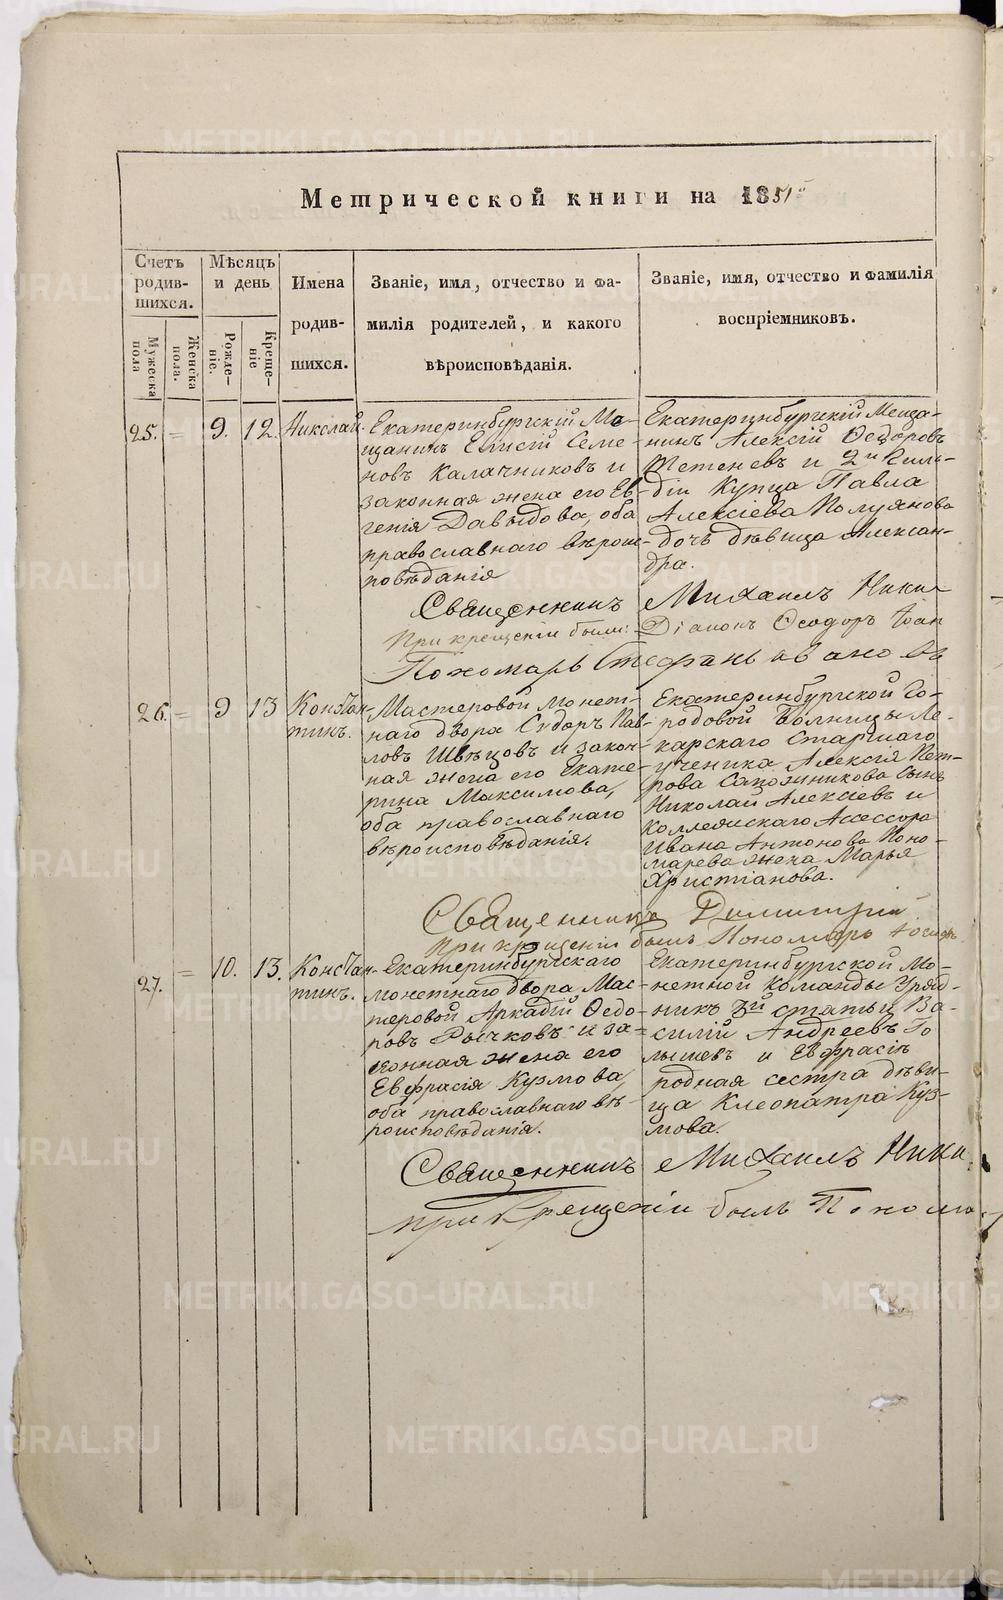 Метрической книги на 1851
Счетъ родив-шихся.
Мужеска пола
Женска пола.
Мѣсяцъ и день
Рожде-ніе.
Креще-ніе
Имена родив-шихся.
Званіе, имя, отчество и фа-
милія родителей, и какого
вѣроисповѣданія.
Званіе, имя, отчество и фамилія
воспріемниковъ.
25. = 9. 12. Николай.
Екатеринбургскій Ме-
щанинъ Елисій Семе-
новъ Калачниковъ и
законная жена его Ев-
генія Давыдова, оба
православнаго вѣроис-
повѣданія
Екатеринбургскій Меща-
нинъ Алексій Ѳедоровъ
Тетеневъ и 2й Гиль-
діи Купца Павла
Алексіева Полуянова
дочь дѣвица Алексан-
дра.
Священникъ Михаилъ Ники
При крещеніи были: Діаконъ Ѳеодоръ Іоан
Пономарь Стефанъ Ивановъ
26. = 9 13 Констан-
тинъ.
Мастеровой Монет-
наго двора Сидоръ Пав-
ловъ Швецовъ и закон-
ная жена его Екате-
рина Максимова,
оба православнаго
вѣроисповѣданія.
Екатеринбургской Го-
родовой Больницы Ле-
карскаго старшаго
ученика Алексія Пет-
рова Сапожникова сынъ
Николай Алексіевъ и
Коллежскаго Ассессора
Ивана Антонова Поно-
марева жена Марья
Христіанова.
Священникъ Димитрій
При крещеніи былъ Пономарь
27. = 10. 13. Констан-
тинъ.
Екатеринбургскаго
монетнаго двора Мас-
теровой Аркадій Ѳедо-
ровъ Рычковъ и за-
конная жена его
Евфрасія Кузмова,
оба православнаго вѣ-
роисповѣданія.
Екатеринбургской Мо-
нетной команды Уряд-
никъ 3й статьи Ва-
силій Андреевъ Го
лышевъ и Евфрасіи
родная сестра дѣви-
ца Клеопатра Куз-
мова.
Священникъ Михаилъ Ники
при крещеніи былъ Понома
METRIKI.GASO-URAL.RU